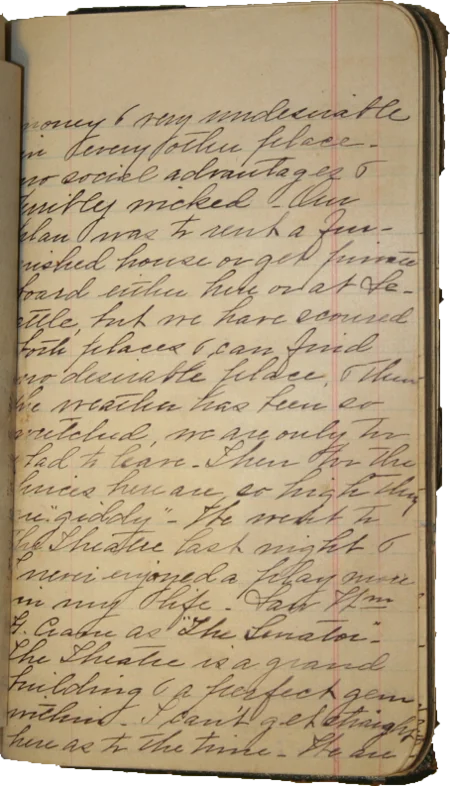 money & very undesirable
in every other place -
no social advantages &
terribly wicked. Our
plan was to rent a fur-
nished house or get private
board either here or at Se-
attle, but we have scoured
both places & can find
no desirable place, & then
the weather has been so
wretched, we are only too
glad to leave - Then too the
prices here are, so high they
are "giddy" - We went to
the Theatre last night &
I never enjoyed a play more
in my life - Saw Wm
H. Crane as "The Senator" -
The Theatre is a grand
building & a perfect gem
within - I can't get straight
here as to the time - We are